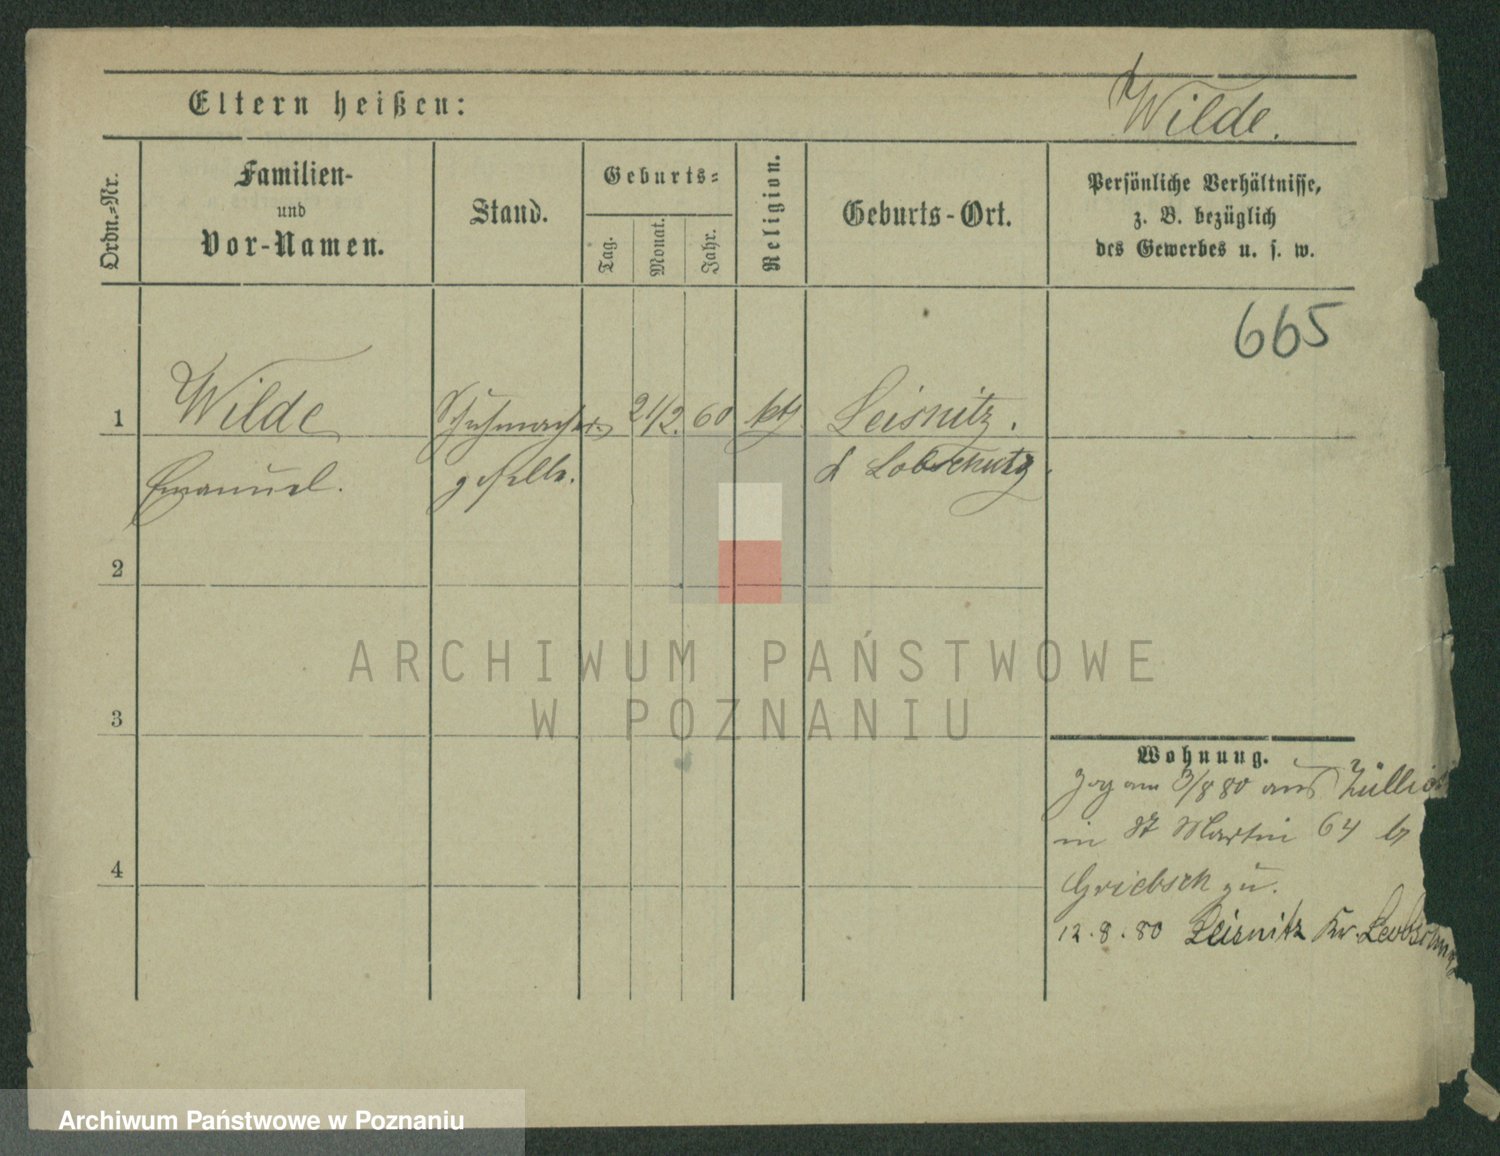 Eltern heißen:
Wilde.
Ordn.-Nr.
Familien-
und
Vor-Namen.
Stand.
Geburts-
Tag.
Monat.
Jahr.
Religion.
Geburts-Ort.
Persönliche Verhältnisse,
z. B. bezüglich
des Gewerbes u. s. w.
665
1 Wilde Schuhmacher 21/2. 60 kth. Leisnitz.
Emanuel. geselle. Lobschütz.
2
3
4
Wohnung.
Zog am 3/8 80 aus Züllic
in St Martin 64 b
Griebsch zu.
12.8.80 Leisnitz Kr. Leobschütz
ARCHIWUM PAŃSTWOWE
W POZNANIU
Archiwum Państwowe w Poznaniu